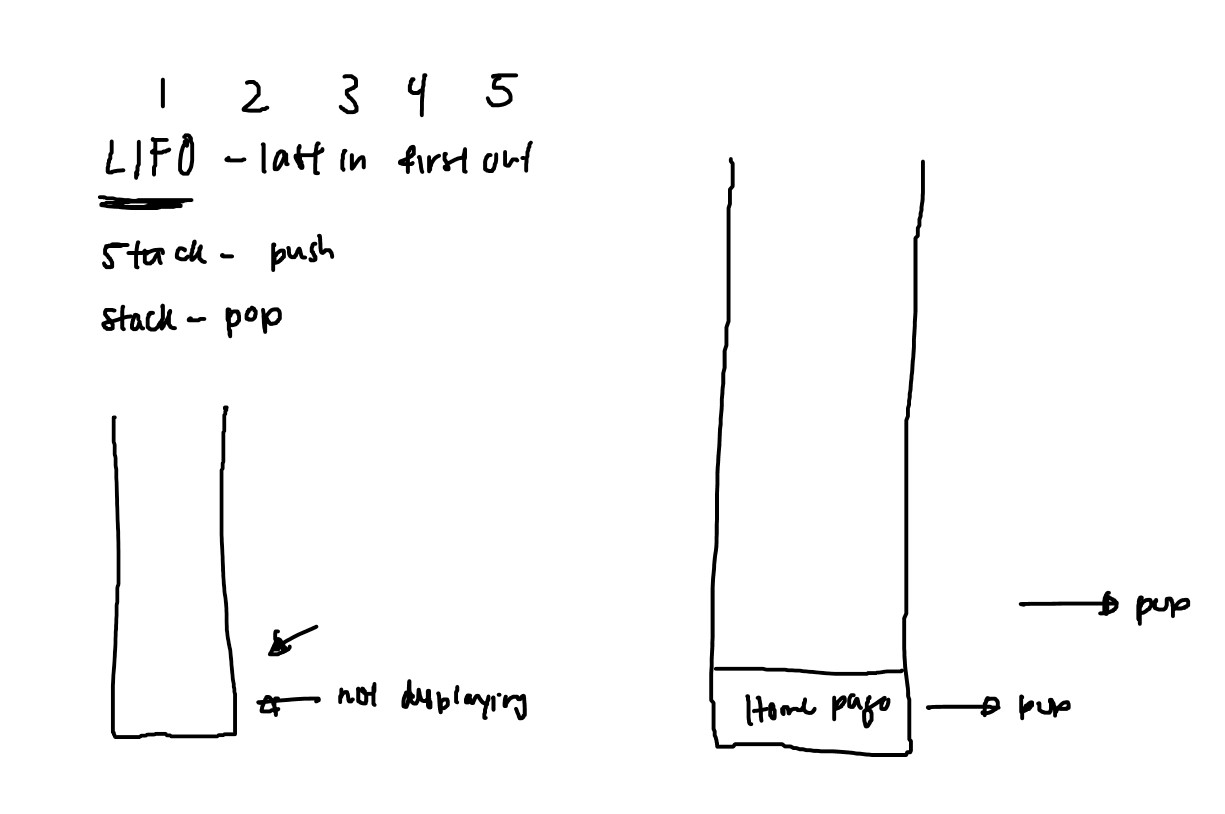 1 2 3 4 5
LIFO - last in first out
Stack - push
stack - pop
not displaying
Home page
pop
pop